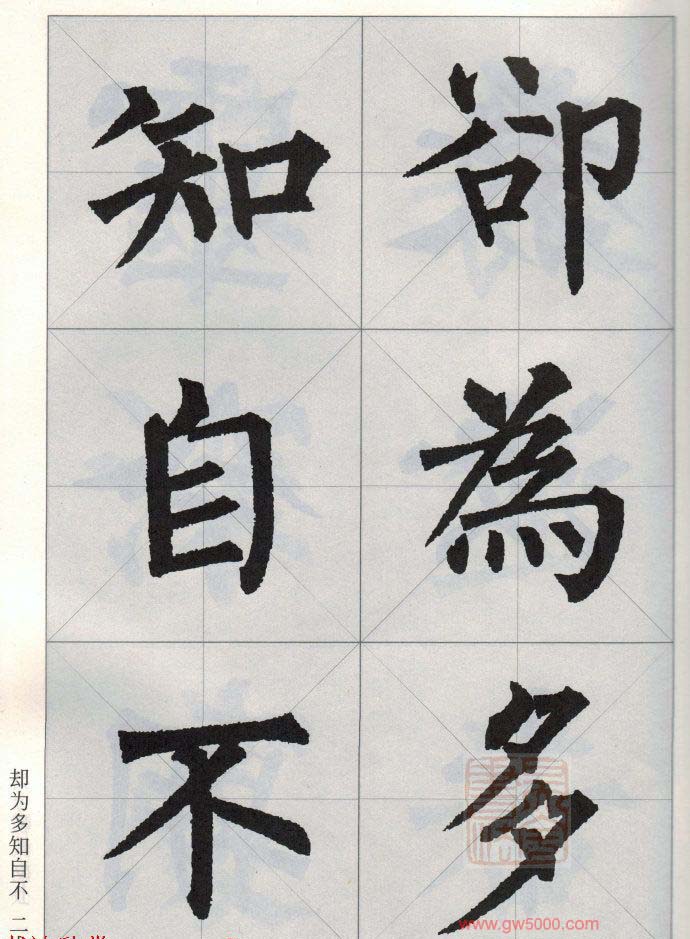 卻為多
知自不
却为多知自不 二
www.gw5000.com